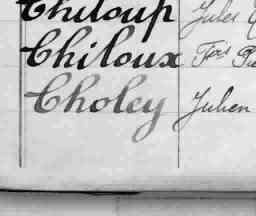 Chiloup Jules
Chiloux Fçois
Choley Julien